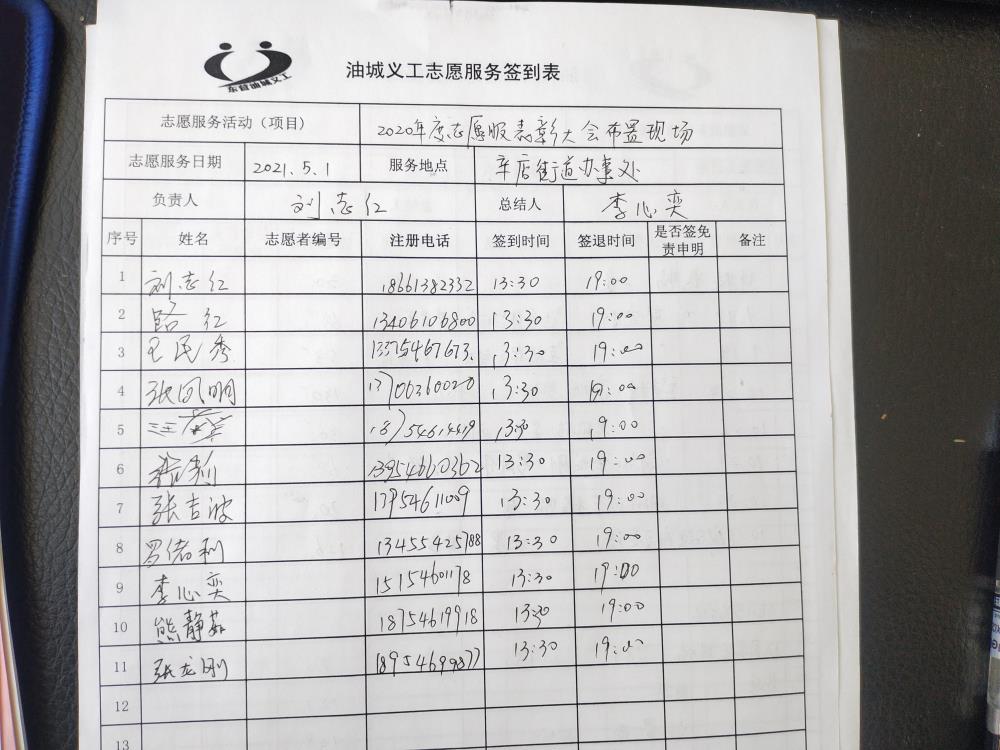 东营油城义工
油城义工志愿服务签到表
志愿服务活动（项目） 2020年度志愿服表彰大会布置现场
志愿服务日期 2021.5.1 服务地点 辛店街道办事处
负责人 刘志红 总结人 李心奕
序号 姓名 志愿者编号 注册电话 签到时间 签退时间 是否签免责申明 备注
1 刘志红 18661382332 13:30 19:00
2 路红 13406106800 13:30 19:00
3 王民秀 13:30 19:00
4 张凤明 13706360020 13:30 19:00
5 18754614419 13:30 19:00
6 13954660362 13:30 19:00
7 张吉波 13954611009 13:30 19:00
8 罗佬利 13455425788 13:30 19:00
9 李心奕 15154601178 13:30 19:00
10 熊静茹 18754619918 13:30 19:00
11 张龙刚 18954699877 13:30 19:00
12
13